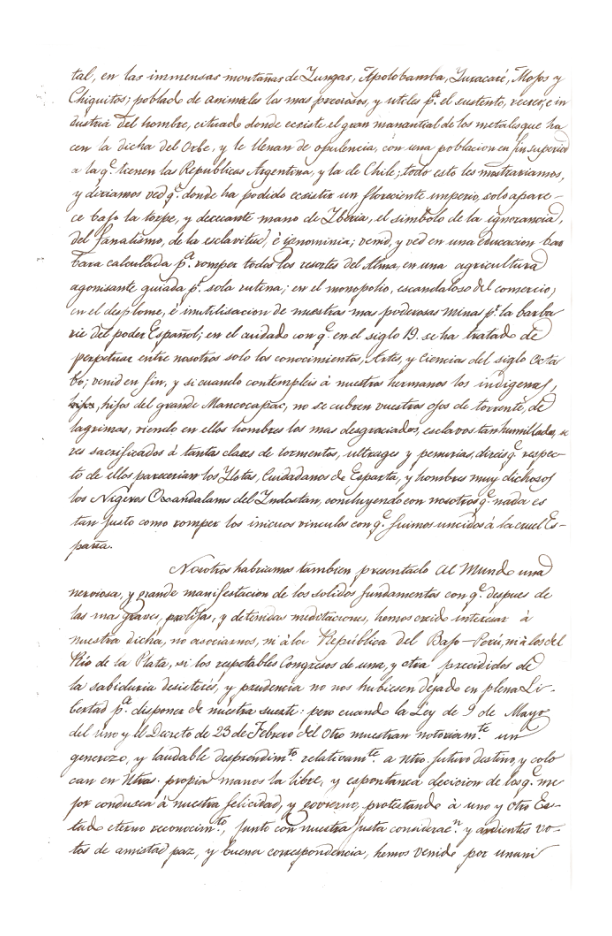 tal, en las immensas montañas de Yungas, Apolobamba, Yuracaré, Mojos y
Chiquitos; poblado de animales los mas preciosos, y utiles pª. el sustento, recreo, e in
dustria del hombre, cituado donde ecsiste el gran manantial de los metales que ha
cen la dicha del Orbe, y le llenan de opulencia, con una poblacion en fin superior
a la q.ͤ tienen las Republicas Argentina, y la de Chile; todo esto les mostrariamos,
y diriamos ved q.ͤ donde ha podido ecsistir un floreciente imperio, solo apare-
ce bajo la torpe, y dececante mano de Yberia, el simbolo de la ignorancia,
del fanatismo, de la esclavitud, é ignominia; venid, y ved en una educacion bar
bara calculada pª. romper todos los resortes del Alma, en una agricultura
agonisante guiada pʳ. sola rutina; en el monopolio, escandaloso del comercio;
en el desplome, é inutilisacion de nuestras mas poderosas minas pʳ. la barba
rie del poder Español; en el cuidado con q.ͤ en el siglo 19. se ha tratado de
perpetuar entre nosotros solo los conocimientos, Artes, y Ciencias del siglo Octa
bo; venid en fin, y si cuando contempleis á nuestros hermanos los indigenas
hijos del grande Mancocapac, no se cubren vuestros ojos de torrentes, de
lagrimas, viendo en ellos hombres los mas desgraciados, esclavos tan humillados, se
res sacrificados á tantas clases de tormentos, ultrages y penurias, direis q.ͤ respec-
to de ellos parecerian los Ylotas, Ciudadanos de Esparta, y hombres muy dichosos
los Nigeros Ossandalams del Yndostan, concluyendo con nosotros q.ͤ nada es
tan justo como romper los inicuos vinculos con q.ͤ fuimos uncidos á la cruel Es-
paña.
Nosotros habriamos tambien presentado Al Mundo una
nerviosa, y grande manifestacion de los solidos fundamentos con q.ͤ despues de
las mas graves, prolijas, y detenidas meditaciones, hemos creido interesar á
nuestra dicha, no asociarnos, ni á la República del Bajo-Perú, ni á los del
Río de la Plata, si los respetables Congresos de una, y otra precididos de
la sabiduria desinterés, y prudencia no nos hubiesen dejado en plena Li-
bertad pª. disponer de nuestra suerte: pero cuando la Ley de 9 de Mayo
del uno y el Decreto de 23 de Febrero del otro muestran notoriam.ᵗᵉ un
generozo, y laudable desprendim.ᵗᵒ relativam.ᵗᵉ a ntro. futuro destino, y colo
can en ntras. propias manos la libre, y espontanea decicion de lo q.ͤ me
jor condusca á nuestra felicidad, y govierno, protestando á uno y otro Es-
tado eterno reconocim.ᵗᵒ, junto con nuestra justa considerac.ⁿ y ardientes vo-
tos de amistad paz, y buena correspondencia, hemos venido por unani